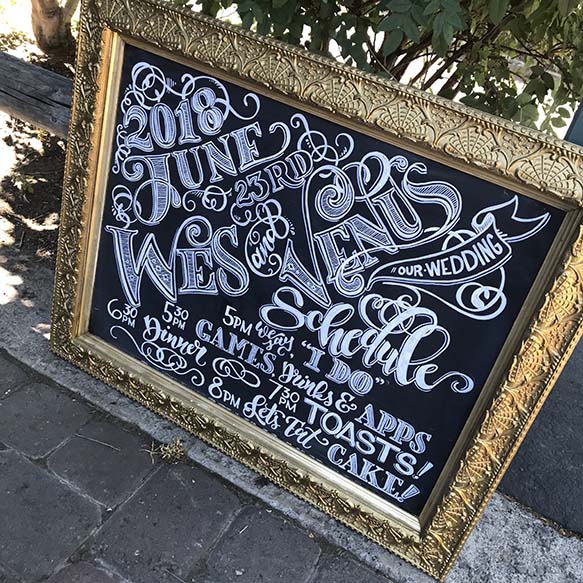 2018
JUNE 23RD
WES and VENUS
OUR WEDDING
Schedule
5PM we say "I DO"
530PM GAMES, Drinks & APPS
630PM Dinner 730PM TOASTS!
8PM Let's Eat CAKE!